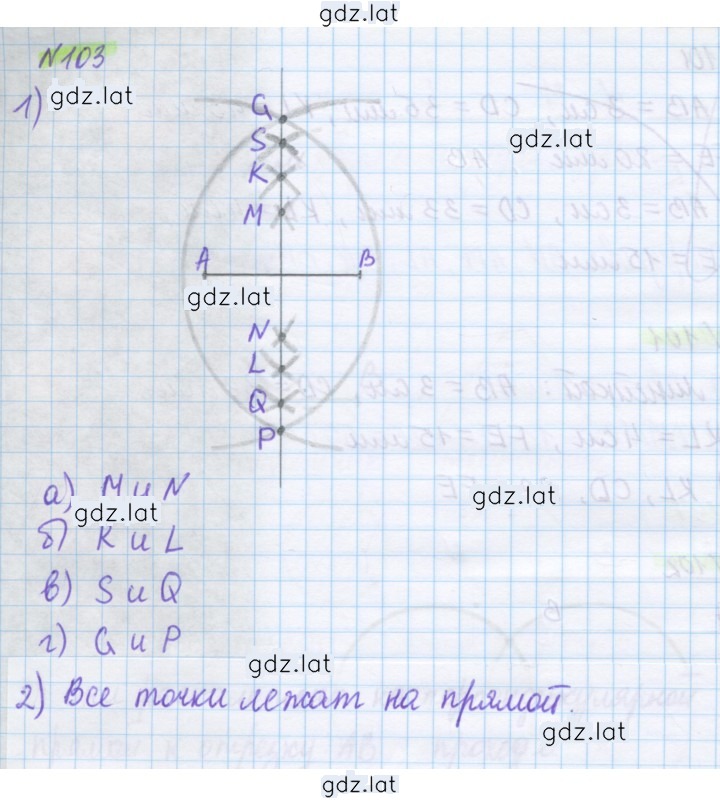 gdz.lat
N103
1)
gdz.lat
G
S
gdz.lat
K
M
A
B
gdz.lat
N
L
Q
P
а) M и N
gdz.lat
gdz.lat
б) K и L
в) S и Q
г) G и P
gdz.lat
2) Все точки лежат на прямой.
gdz.lat
gdz.lat